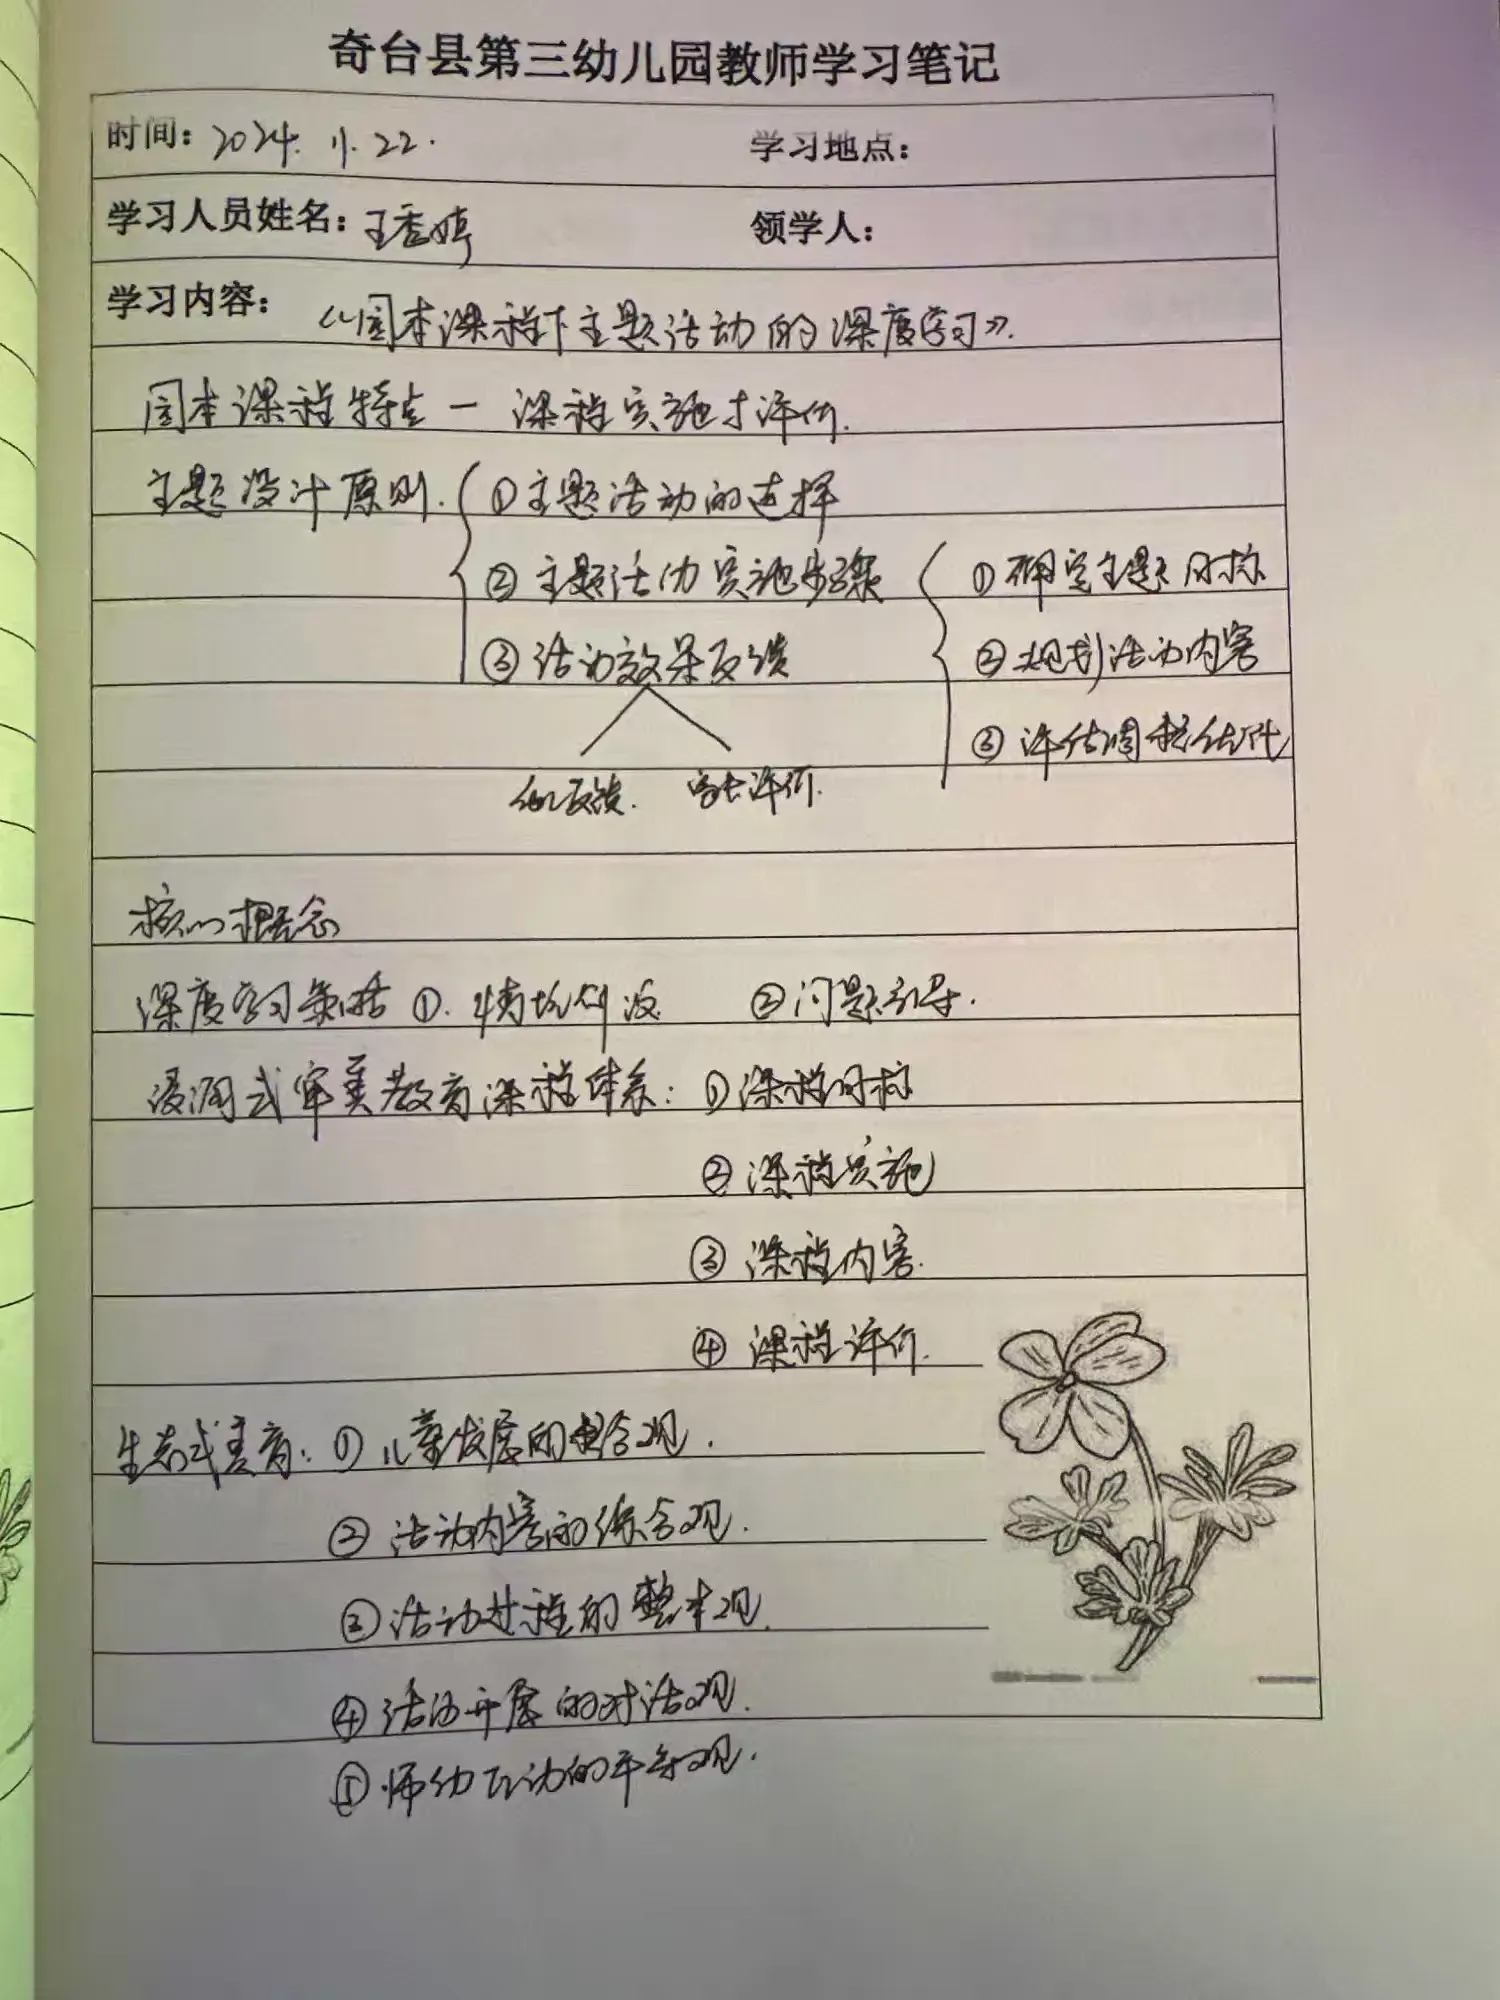 奇台县第三幼儿园教师学习笔记
时间: 2024. 11. 22. 学习地点:
学习人员姓名: 王秀婷 领学人:
学习内容: 《园本课程下主题活动的深度学习》.
园本课程特点 — 课程实施与评价.
主题设计原则. ①主题活动的选择
②主题活动实施步骤 ①确定主题目标
③活动效果反馈 ②规划活动内容
③评估调整优化
幼儿反馈. 家长评价.
核心概念
深度学习策略 ①. 情境创设 ②问题引导.
浸润式审美教育课程体系: ①课程目标
②课程实施
③课程内容.
④课程评价.
生态式美育: ①儿童发展的整合观.
②活动内容的综合观.
③活动过程的整体观.
④活动开展的对话观.
⑤师幼互动的平等观.